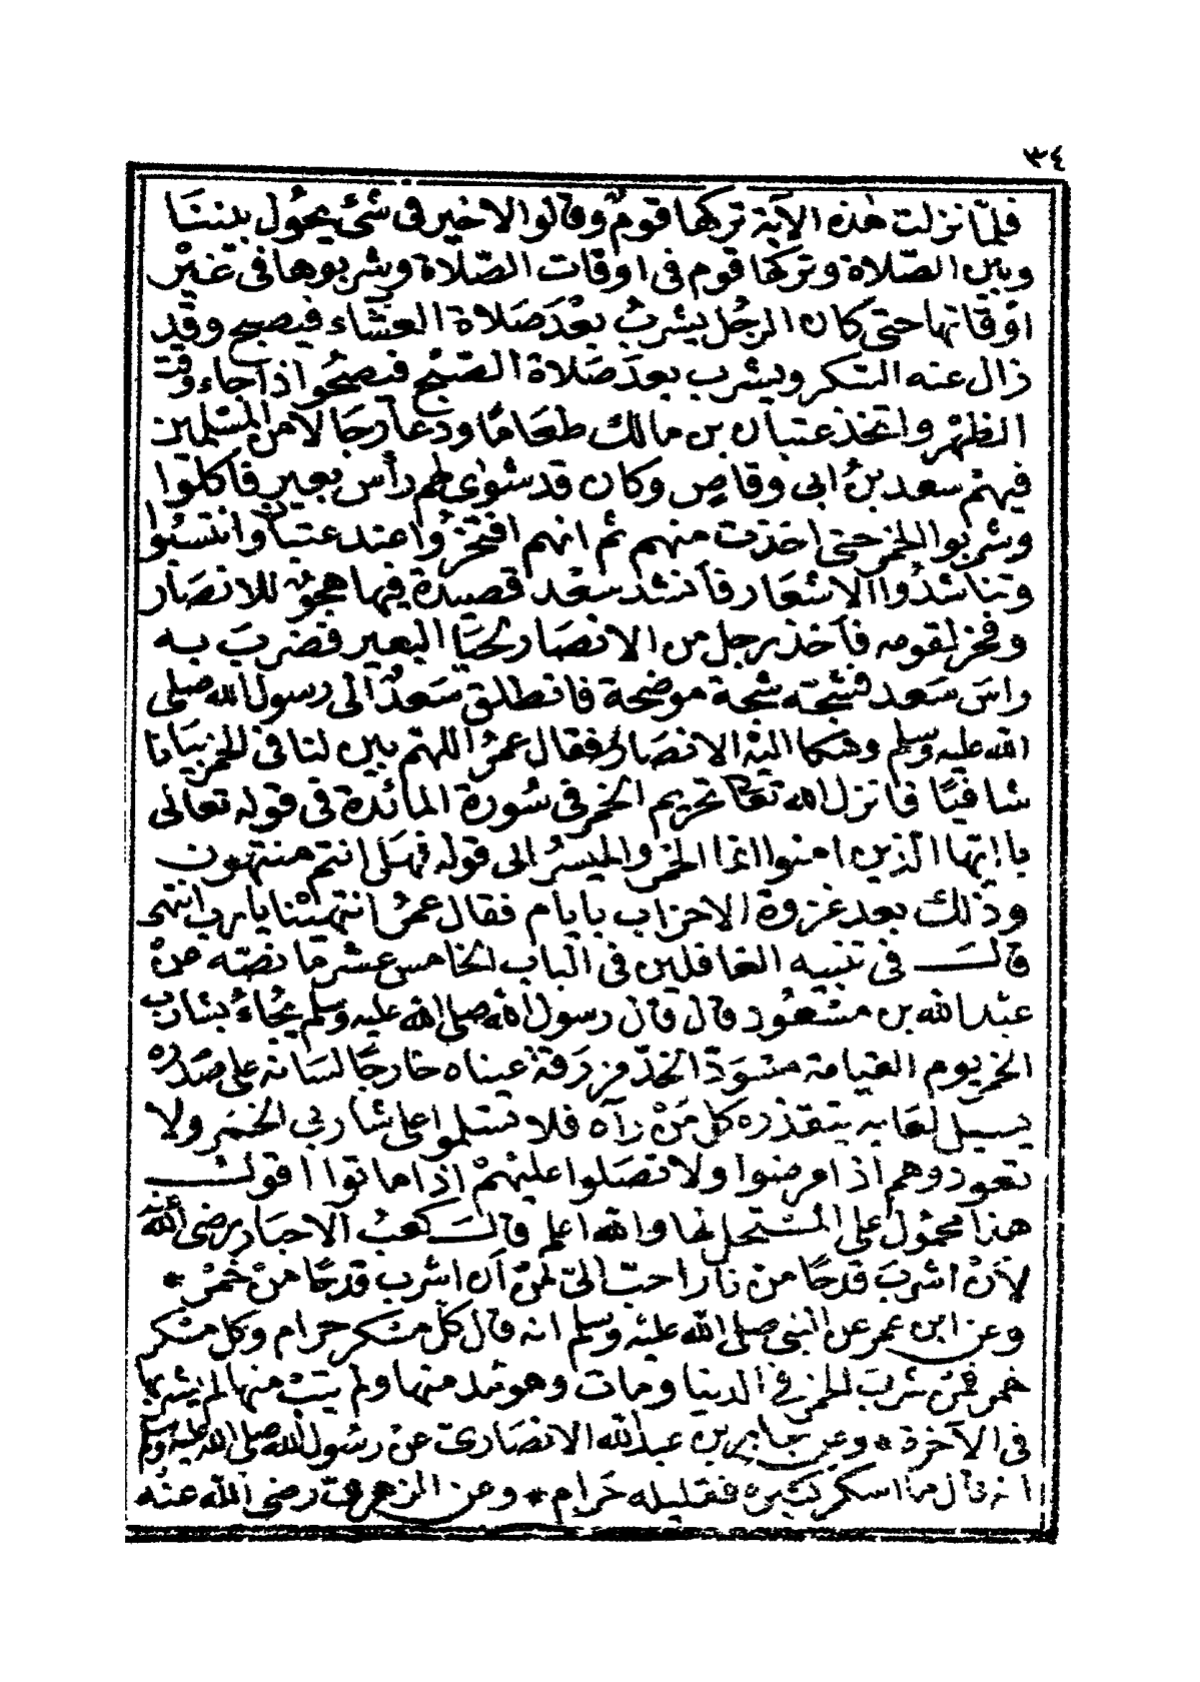 ٣٤
فلمّا نزلت هذه الآية تركها قوم وقالوا لا خير فى شئ يحول بيننا
وبين الصّلاة وتركها قوم فى اوقات الصّلاة وشربوها فى غير
اوقاتها حتى كان الرجل يشرب بعد صلاة العشاء فيصبح وقد
زال عنه السكر ويشرب بعد صلاة الصبح فيصحوا اذا جاء وقت
الظهر واتخذ عتبان بن مالك طعاما ودعا رجالا من المسلمين
فيهم سعد بن ابى وقاص وكان قد شوى لهم رأس بعير فاكلوا
وشربوا الخمر حتى اخذت منهم ثم انهم افتخروا عند عتبان وانتسبوا
وتناشدوا الاشعار فأنشد سعد قصيدة فيها هجو للانصار
وفخر لقومه فأخذ رجل من الانصار لحيا البعير فضرب به
راس سعد فشجته شجة موضحة فانطلق سعد الى رسول الله صلى
الله عليه وسلم وشكا اليه الانصار فقال عمر اللهم بين لنا فى الخمر بيانا
شافيا فانزل الله تعالى تحريم الخمر فى سورة المائدة فى قوله تعالى
يا ايها الذين امنوا انما الخمر والميسر الى قوله فهل انتم منتهون
وذلك بعد غزوة الاحزاب بايام فقال عمر انتهينا يارب انتهى
قال فى تنبيه الغافلين فى الباب الخامس عشر ما نصّه عن
عبد الله بن مسعود قال قال رسول الله صلى الله عليه وسلم يجاء بشارب
الخمر يوم القيامة مسودّ الخدّ مزرقة عيناه خارجا لسانه على صدره
يسيل لعابه يتقذره كل من رآه فلا تسلموا على شاربي الخمر ولا
تعودوهم اذا مرضوا ولا تصلوا عليهم اذا ماتوا اقول
هذا محمول على المستحل لها والله اعلم قال كعب الاحبار رضى الله عنه
لأن اشرب قدحا من نار احب الىّ من أن اشرب قدحا من خمر *
وعن ابن عمر عن النبى صلى الله عليه وسلم انه قال كل مسكر حرام وكل مسكر
خمر فمن شرب الخمر في الدنيا ومات وهو مدمنها ولم يتب منها لم يشربها
فى الآخرة * وعن جابر بن عبد الله الانصارى عن رسول الله صلى الله عليه وسلم
انه قال ما اسكر كثيره فقليله حرام * وعن الزهرى رضى الله عنه